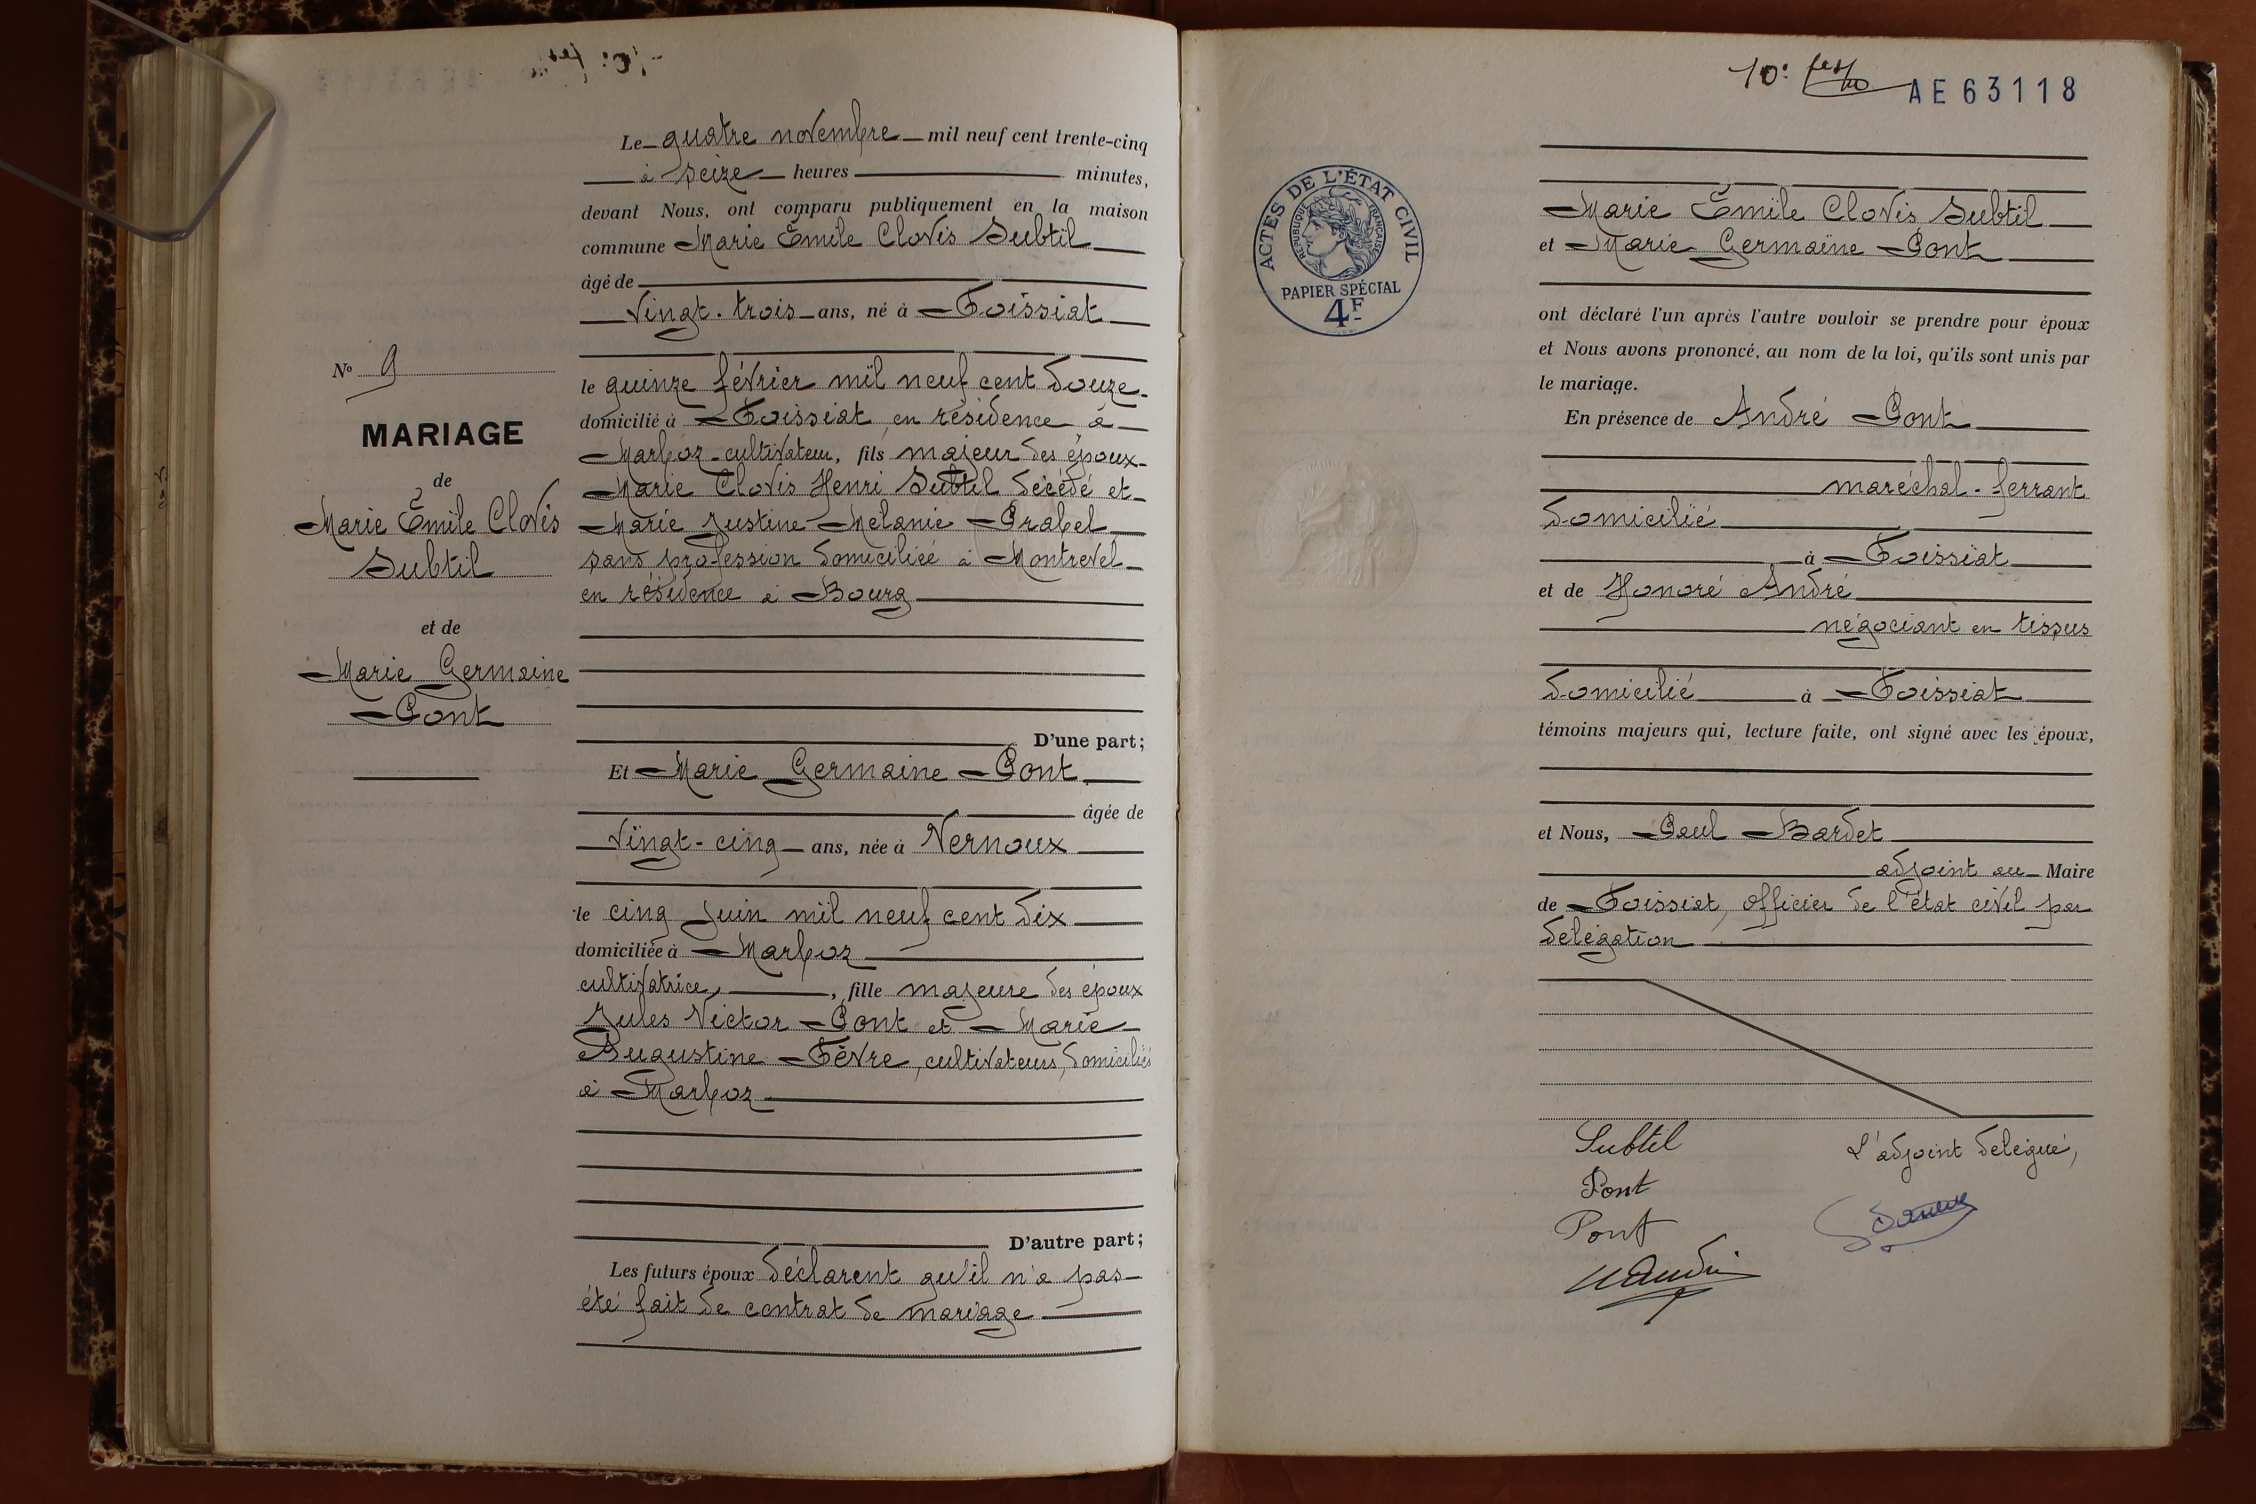 Le quatre novembre mil neuf cent trente-cinq
à seize heures minutes,
devant Nous, ont comparu publiquement en la maison
commune Marie Émile Clovis Subtil
âgé de
vingt-trois ans, né à Foissiat
le quinze février mil neuf cent douze
domicilié à Foissiat, en résidence à
Marboz cultivateur, fils majeur des époux
Marie Clovis Henri Subtil décédé et
Marie Justine Mélanie Prabel
sans profession domiciliée à Montrevel
en résidence à Bourg
D'une part;
Et Marie Germaine Pont
âgée de
vingt-cinq ans, née à Vernoux
le cinq juin mil neuf cent dix
domiciliée à Marboz
cultivatrice, , fille majeure des époux
Jules Victor Pont et Marie
Augustine Fèvre, cultivateurs, domiciliés
à Marboz
D'autre part;
Les futurs époux déclarent qu'il n'a pas
été fait de contrat de mariage
No 9
MARIAGE
de
Marie Émile Clovis
Subtil
et de
Marie Germaine
Pont
10e AE63118
ACTES DE L'ÉTAT CIVIL
RÉPUBLIQUE FRANÇAISE
PAPIER SPÉCIAL
4F
Marie Émile Clovis Subtil
et Marie Germaine Pont
ont déclaré l'un après l'autre vouloir se prendre pour époux
et Nous avons prononcé, au nom de la loi, qu'ils sont unis par
le mariage.
En présence de André Pont
maréchal-ferrant
domicilié
à Foissiat
et de Honoré André
négociant en tissus
domicilié à Foissiat
témoins majeurs qui, lecture faite, ont signé avec les époux,
et Nous, Paul Bardet
adjoint au Maire
de Foissiat, officier de l'état civil par
délégation
Subtil L'adjoint délégué,
Pont
Pont